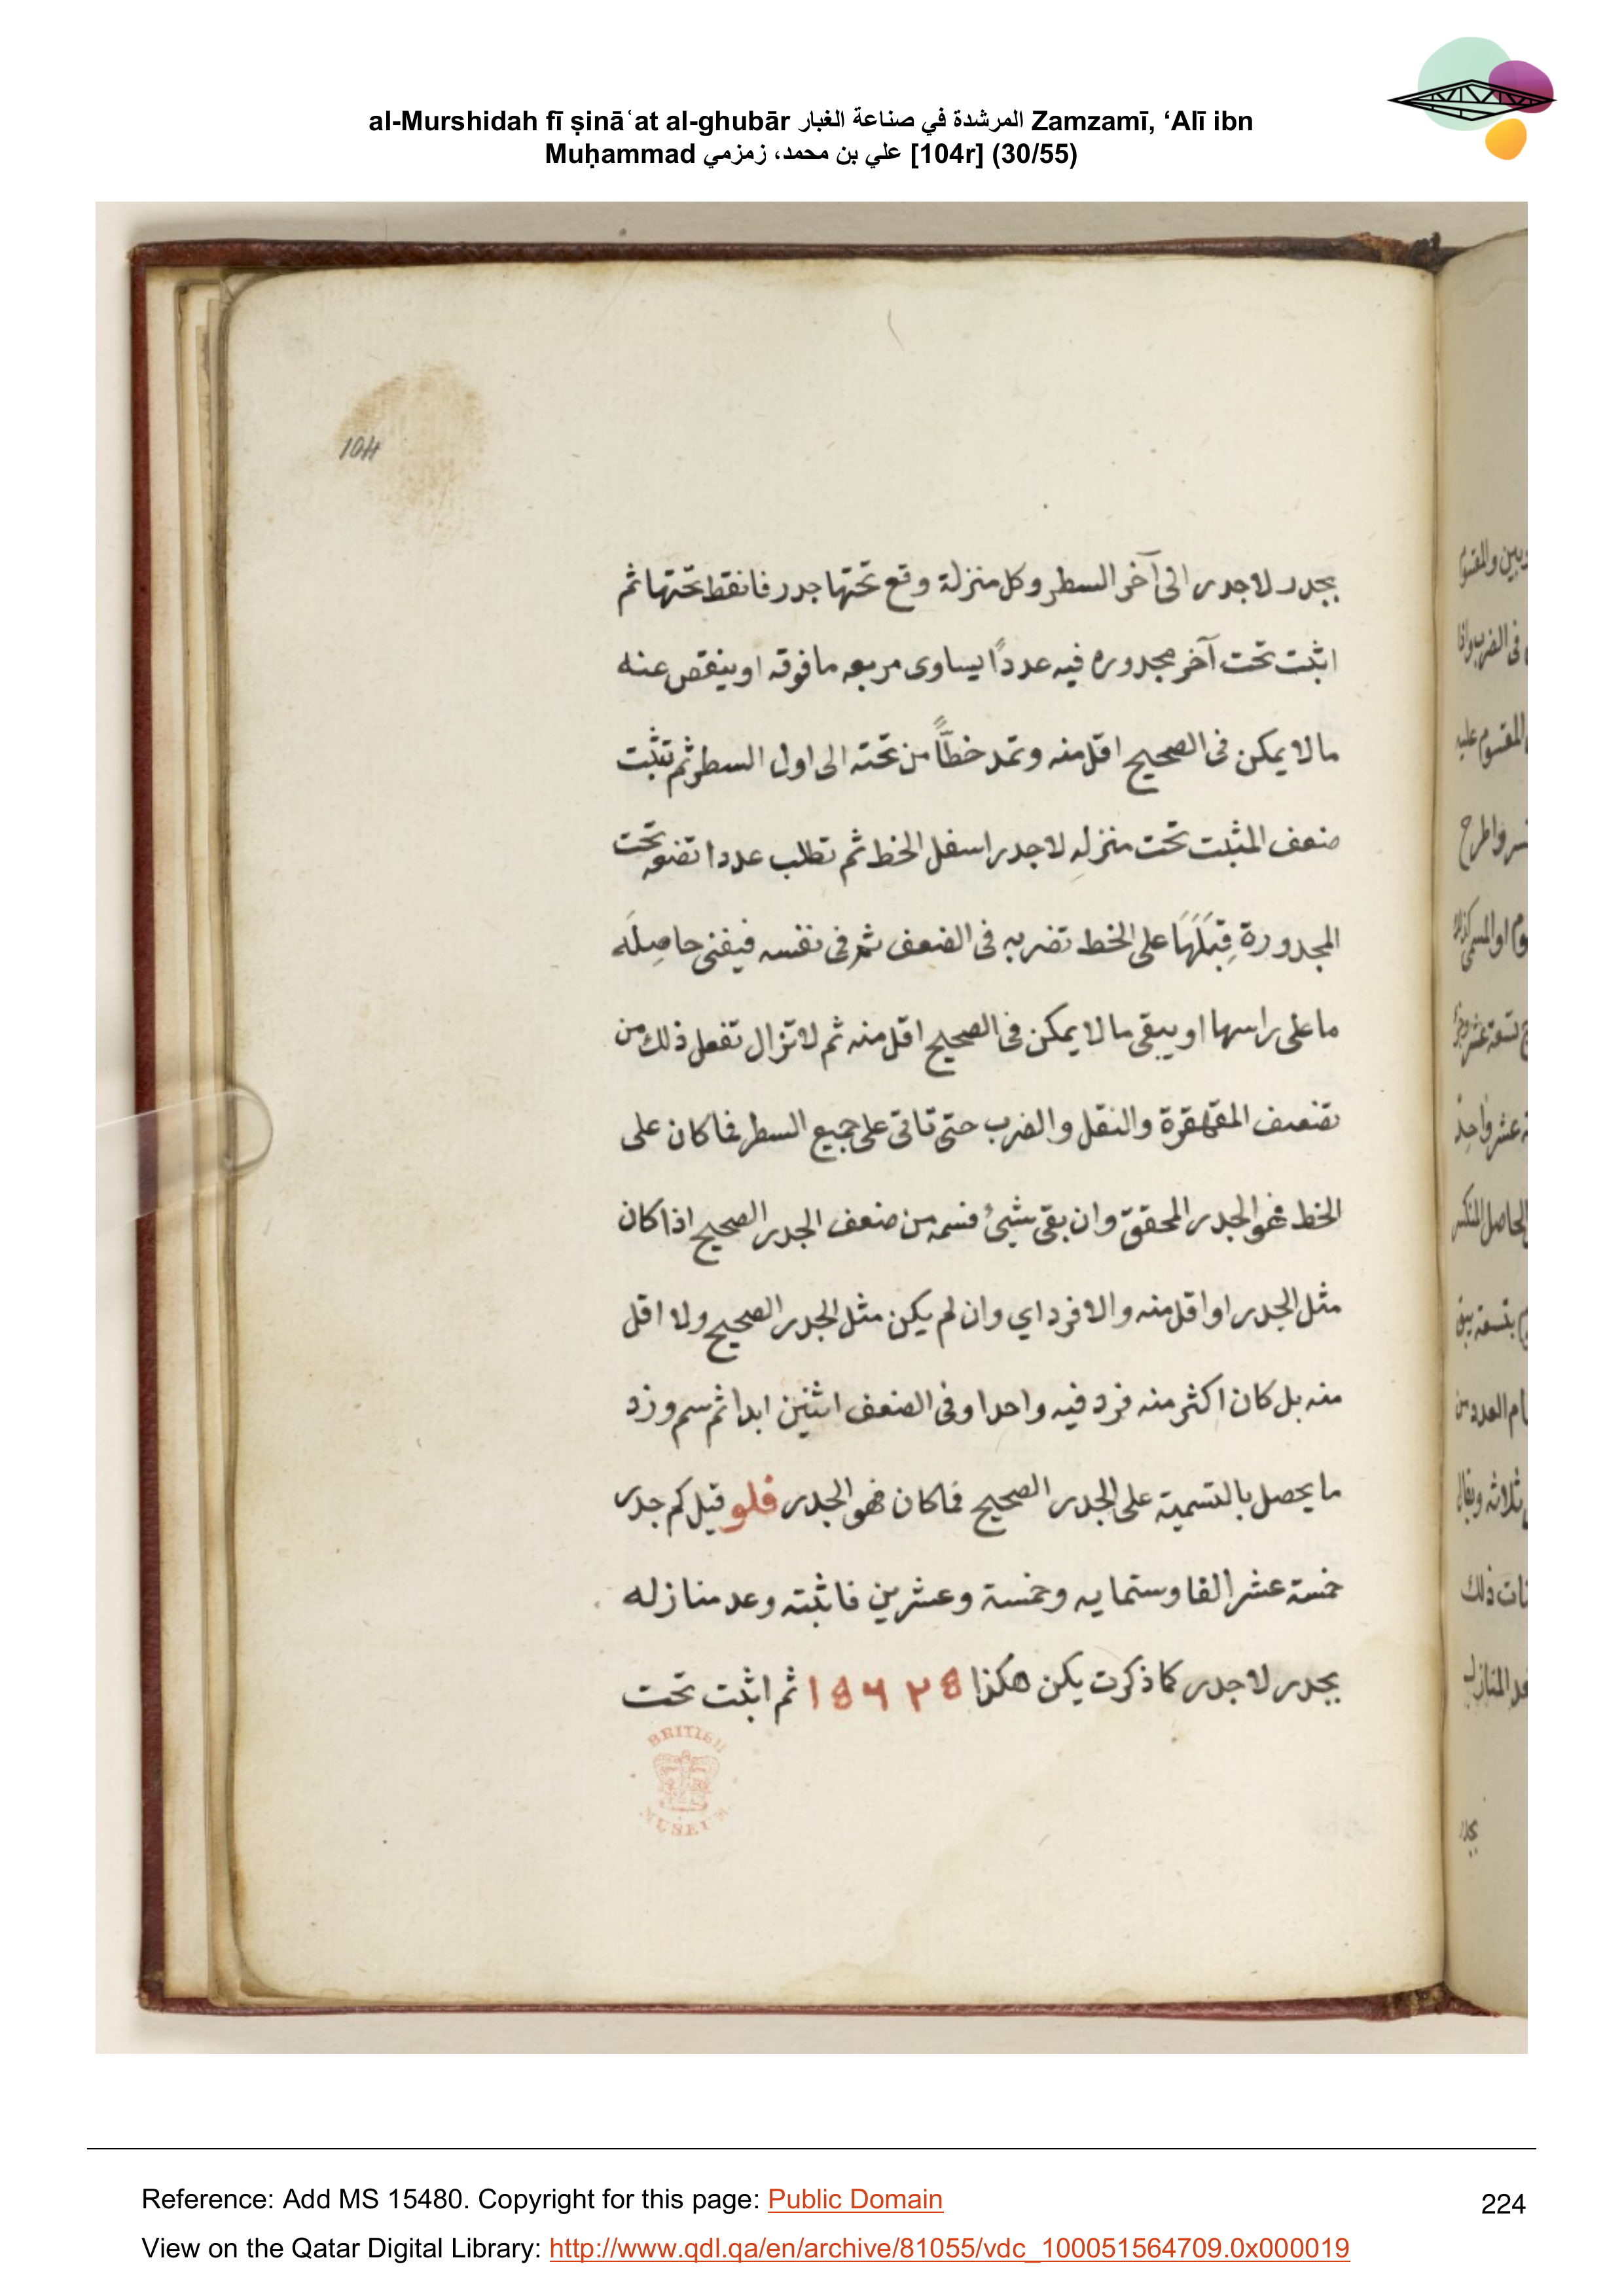 al-Murshidah fī ṣināʿat al-ghubār المرشدة في صناعة الغبار Zamzamī, ‘Alī ibn
Muḥammad علي بن محمد، زمزمي [104r] (30/55)
104
بجدر لاجدر الى آخر السطر وكل منزلة وقع تحتها جدر فانقط تحتها ثم
اثبت تحت آخر مجدوره فيه عددًا يساوى مربعه مافوقه او ينقص عنه
مالا يمكن فى الصحيح اقل منه وتمد خطًّا من تحته الى اول السطر ثم تثبت
ضعف المثبت تحت منزلهِ لاجدر اسفل الخط ثم تطلب عددا تضعه تحت
المجدورة قِبَلَهَا على الخط تضربه فى الضعف ثم فى نفسه فيفنى حاصِلَه
ما على راسها او يبقى مالا يمكن فى الصحيح اقل منه ثم لا تزال تفعل ذلك من
تضعيف المقهقرة والنقل والضرب حتى تاتى على جميع السطر فما كان على
الخط فهو الجدر المحقق وان بقى شيئُ فسمه من ضعف الجدر الصحيح اذا كان
مثل الجدر او اقل منه والا فرد اي وان لم يكن مثل الجدر الصحيح ولا اقل
منه بل كان اكثر منه فزد فيه واحدا وفى الضعف اثنين ابدا ثم سم وزد
ما يحصل بالتسمية على الجدر الصحيح فما كان فهو الجدر فلو قيل كم جدر
خمسة عشر الفا وستمايه وخمسة وعشرين فاثبته وعد منازله
بجدر لاجدر كما ذكرت يكن هكذا 15625 ثم اثبت تحت
BRITISH
MUSEUM
Reference: Add MS 15480. Copyright for this page: Public Domain
224
View on the Qatar Digital Library: http://www.qdl.qa/en/archive/81055/vdc_100051564709.0x000019